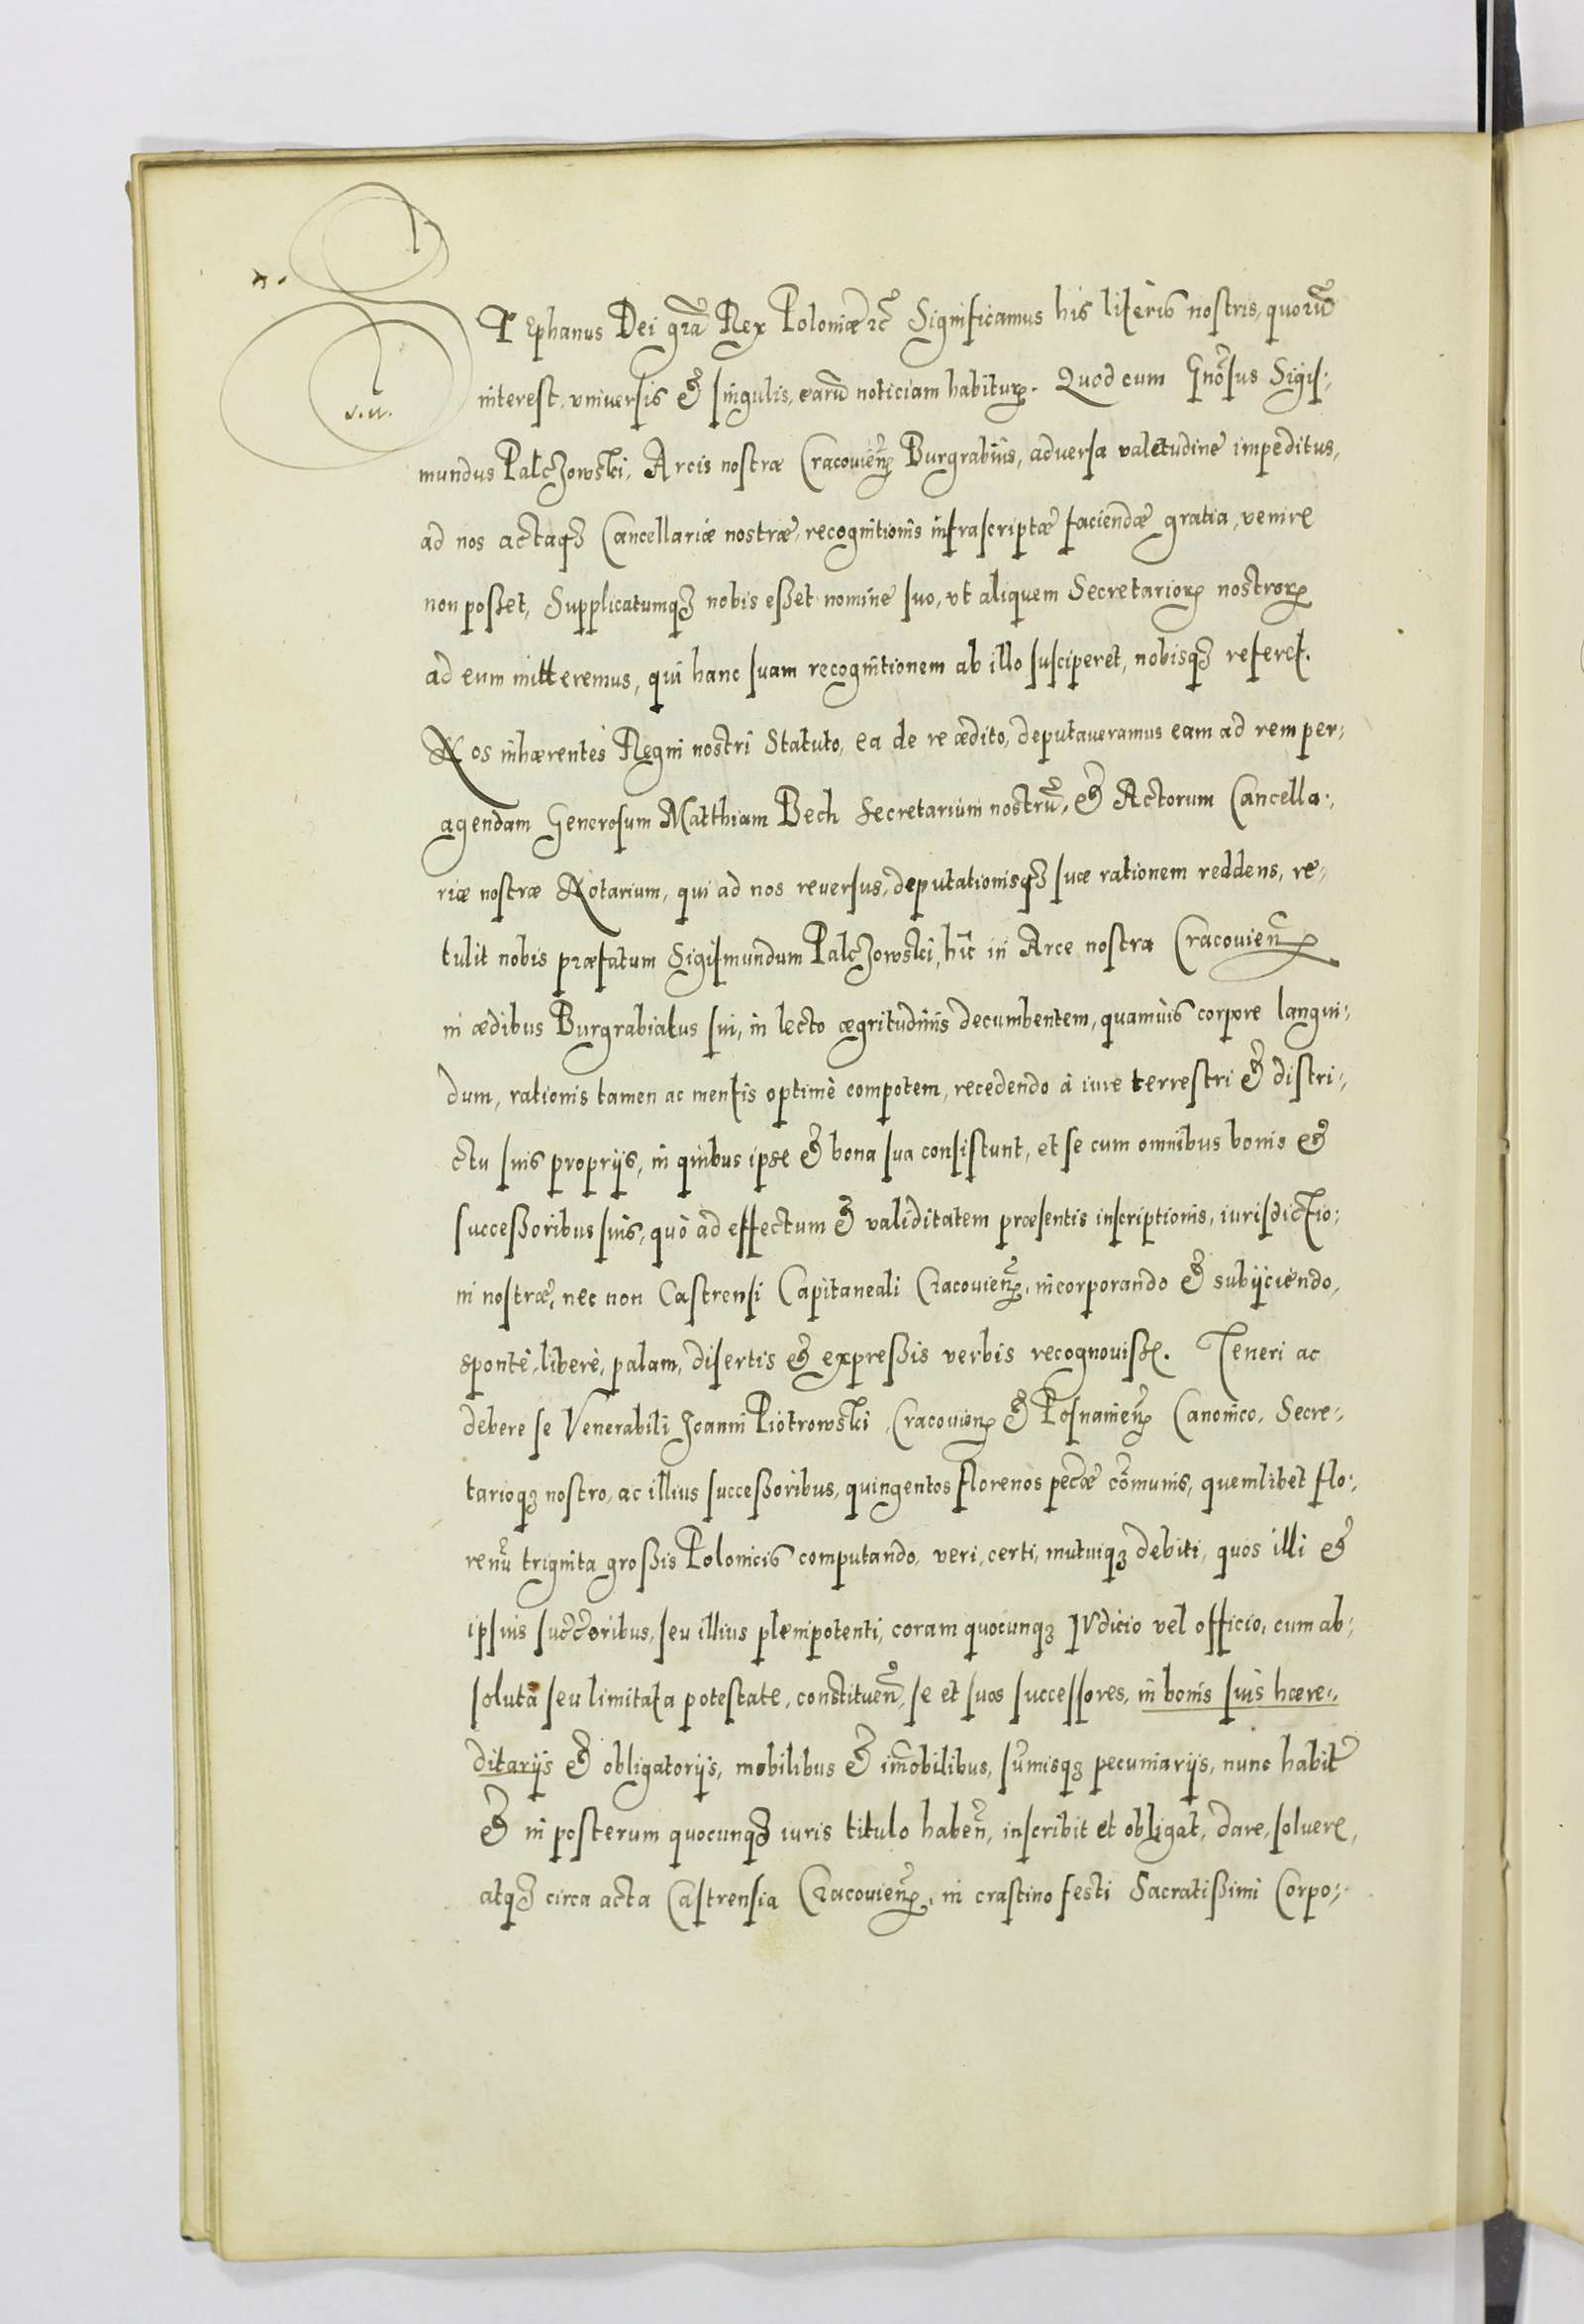 STEphanus Dei gra͂ Rex Poloniæ ꝛc̃ Significamus his literis nostris, quorũ
s.w.
interest, vniuersis & singulis, earũ noticiam habiturꝝ. Quod cum Gnõsus Sigis:
mundus Palczowski, Arcis nostræ Cracouień Burgrabius, aduersa valetudine impeditus,
ad nos actaqꝫ Cancellariæ nostræ, recognitionis infrascriptæ faciendæ gratia, venire
non poßet, Supplicatumqꝫ nobis eßet nomine suo, vt aliquem Secretarioꝝ nostroꝝ
ad eum mitteremus, qui hanc suam recognitionem ab illo susciperet, nobisqꝫ referet.
Nos inhærentes Regni nostri Statuto, ea de re ædito, deputaueramus eam ad rem per:
agendam Generosum Matthiam Bech Secretarium nostrũ, & Actorum Cancella:
riæ nostræ Notarium, qui ad nos reuersus, deputationisqꝫ suæ rationem reddens, re:
tulit nobis præfatum Sigismundum Palczowski, hic in Arce nostra Cracouień
in ædibus Burgrabiatus sui, in lecto ægritudinis decumbentem, quamuis corpore langui:
dum, rationis tamen ac mentis optimè compotem, recedendo à iure terrestri & distri:
ctu suis proprijs, in quibus ipse & bona sua consistunt, et se cum omnibus bonis &
succeßoribus suis, quò ad effectum & validitatem præsentis inscriptionis, iurisdictio:
ni nostræ, nec non Castrensi Capitaneali Cracouień, incorporando & subijciendo,
spontè, liberè, palam, disertis & expreßis verbis recognouiße. Teneri ac
debere se Venerabili Joanni Piotrowski, Cracouień & Posnanień Canonico, Secre:
tarioqꝫ nostro, ac illius succeßoribus, quingentos florenos pecũæ cõmunis, quemlibet flo:
renũ triginta großis Polonicis computando, veri, certi, mutuiqꝫ debiti, quos illi &
ipsius succ̃oribus, seu illius plenipotenti, coram quocunqꝫ Iudicio vel officio, cum ab:
soluta seu limitata potestate, constitueñ, se et suos successores, in bonis suis hære:
ditarijs & obligatorijs, mobilibus & im̃obilibus, sum̃isqꝫ pecuniarijs, nunc habit̃
& in posterum quocunqꝫ iuris titulo habeñ, inscribit et obligat, dare, soluere,
atqꝫ circa acta Castrensia Cracouień, in crastino festi Sacratißimi Corpo: